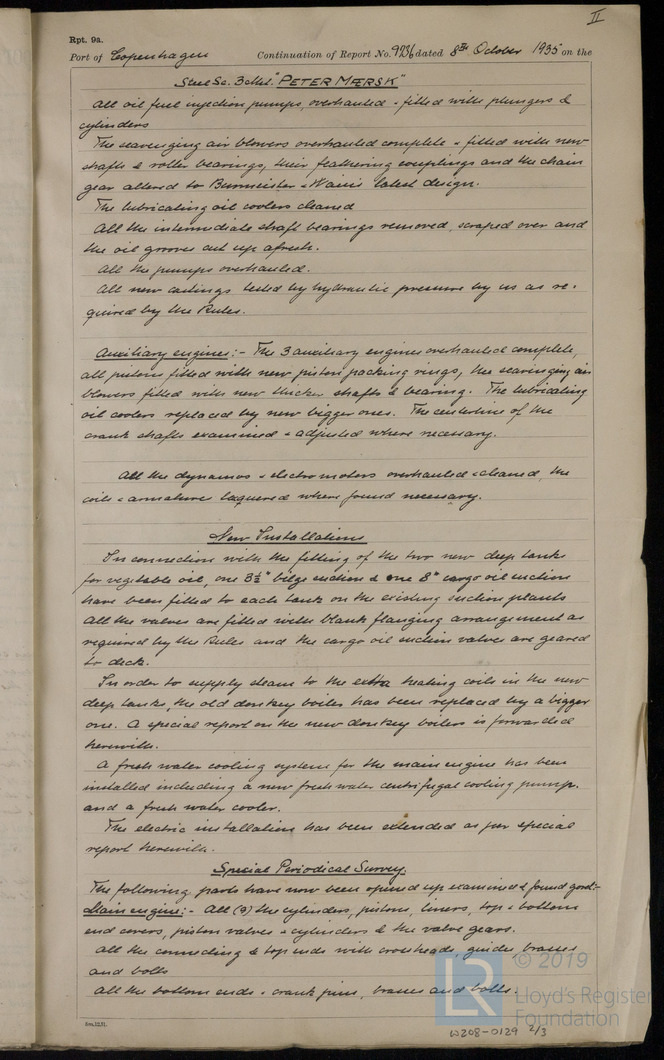 II
Rpt. 9a.
Port of Copenhagen Continuation of Report No. 9736 dated 8th October 1935 on the
Steel Sc. 3 "PETER MÆRSK"
All oil fuel injection pumps, overhauled & fitted with plungers &
cylinders
The scavenging air blowers overhauled complete & fitted with new
shafts & roller bearings, their feathering couplings and the chain
gear altered to Burmeister & Wain's latest design.
The lubricating oil coolers cleaned
All the intermediate shaft bearings removed, scraped over and
the oil grooves cut up afresh.
All the pumps overhauled.
All new castings tested by hydraulic pressure by us as re-
quired by the Rules.
Auxiliary engines:- The 3 auxiliary engines overhauled complete,
all pistons fitted with new piston packing rings, the scavenging air
blowers fitted with new thicker shafts & bearing. The lubricating
oil coolers replaced by new bigger ones. The centerline of the
crank shafts examined & adjusted where necessary.
All the dynamos & electromotors overhauled & cleaned, the
coils & armature laquered where found necessary.
New Installations
In connection with the fitting of the two new deep tanks
for vegetable oil, one 3½" bilge suction & one 8" cargo oil suction
have been fitted to each tank on the existing suction plants
All the valves are fitted with blank flanging arrangement as
required by the Rules and the cargo oil suction valves are geared
to deck.
In order to supply steam to the extra heating coils in the new
deep tanks, the old donkey boiler has been replaced by a bigger
one. A special report on the new donkey boilers is forwarded
herewith.
A fresh water cooling system for the main engine has been
installed including a new fresh water centrifugal cooling pump.
and a fresh water cooler.
The electric installation has been extended as per special
report herewith.
Special Periodical Survey.
The following parts have now been opened up examined & found good:-
Main engine:- All (9) the cylinders, pistons, liners, top & bottom
end covers, piston valves & cylinders & the valve gears.
All the connecting & top ends with crossheads, guides brasses
and bolts
All the bottom ends & crank pins, brasses and bolts.
© 2019
LR
Lloyd's Register
Foundation
W208-0129 2/3